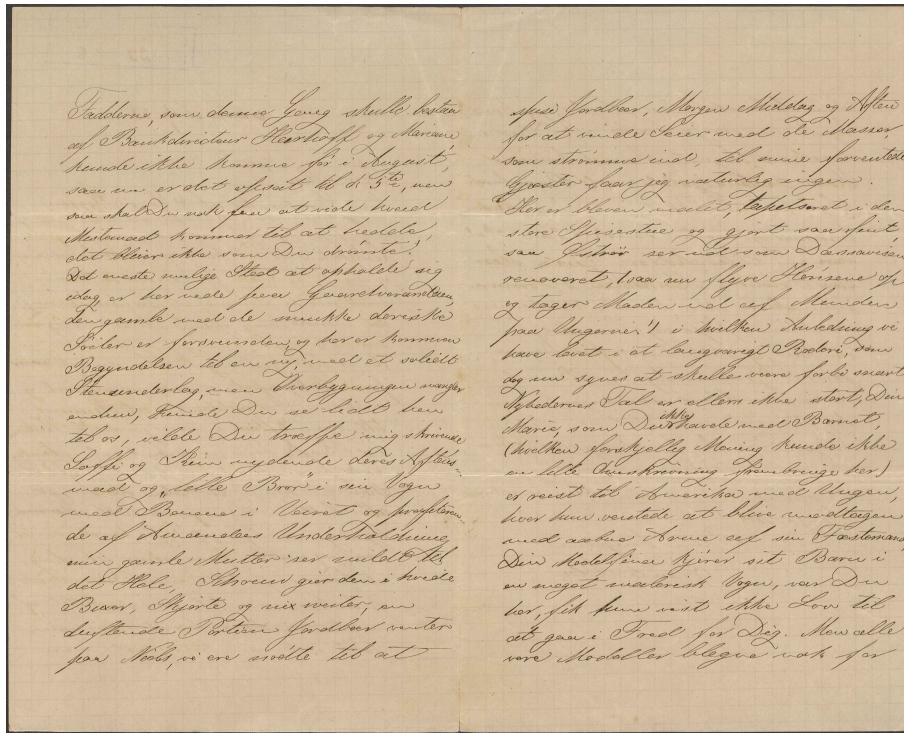 Fadderne, som denne Gang skulle bestaa
af Bankdirecteur Heerhoff og Mariane
kunde ikke komme før i August,
saa nu er det opsat til d. 5te, men
saa skal Du nok faa at vide hvad
kommer til at hedde,
det bliver ikke som Du drømte!
Det eneste mulige Sted at opholde sig
idag er her nede paa Gaardverandaen,
den gamle med de smukke doriske
Søiler er forsvunden og her er kommen
Begyndelsen til en ny med et solidt
Stenunderlag, men Overbygningen mangler
endnu, kunde Du se lidt hen
til os, vilde Du træffe mig skrivende
Soffi og nydende deres Aftens-
mad og "lille Bror" i sin Vogn
med Benene i Veiret og profiteren
de af Amandas Underholdning
min gamle Mutter ser mildt til
det Hele, gør dem i hvide
Buxer, Skjorte og nix weiter, en
duftende Portion Jordbær venter
paa vi ere nødte til at
spise Jordbær, Morgen Middag og Aften
for at vinde Seier med de Masser,
som strømme ind, til mine forventede
Gjæster faar jeg naturlig ingen.
Her er bleven malet, tapetseret i den
store Spisestue og gjort saa fint,
saa ser ud som
renoveret, (saa nu flyve Hønsene op
og tager Maden ud af Munden
paa Ungerne!) i hvilken Anledning vi
have levet i et langvarigt Roderi, som
dog nu synes at skulle være forbi snart.
Nyhedernes Tal er ellers ikke stort, Din
Marie, som Du ikke havde med Barnet,
(hvilken forskjellig Mening kunde ikke
en lille Omskrivning frembringe her)
er reist til Amerika med Ungen,
hvor hun ventede at blive modtagen
med aabne Arme af sin Fæstemand,
Din kjører sit Barn i
en meget malerisk Vogn, var Du
her, fik hun vist ikke Lov til
at gaa i Fred for Dig. Men alle
vore Modeller blegne nok for